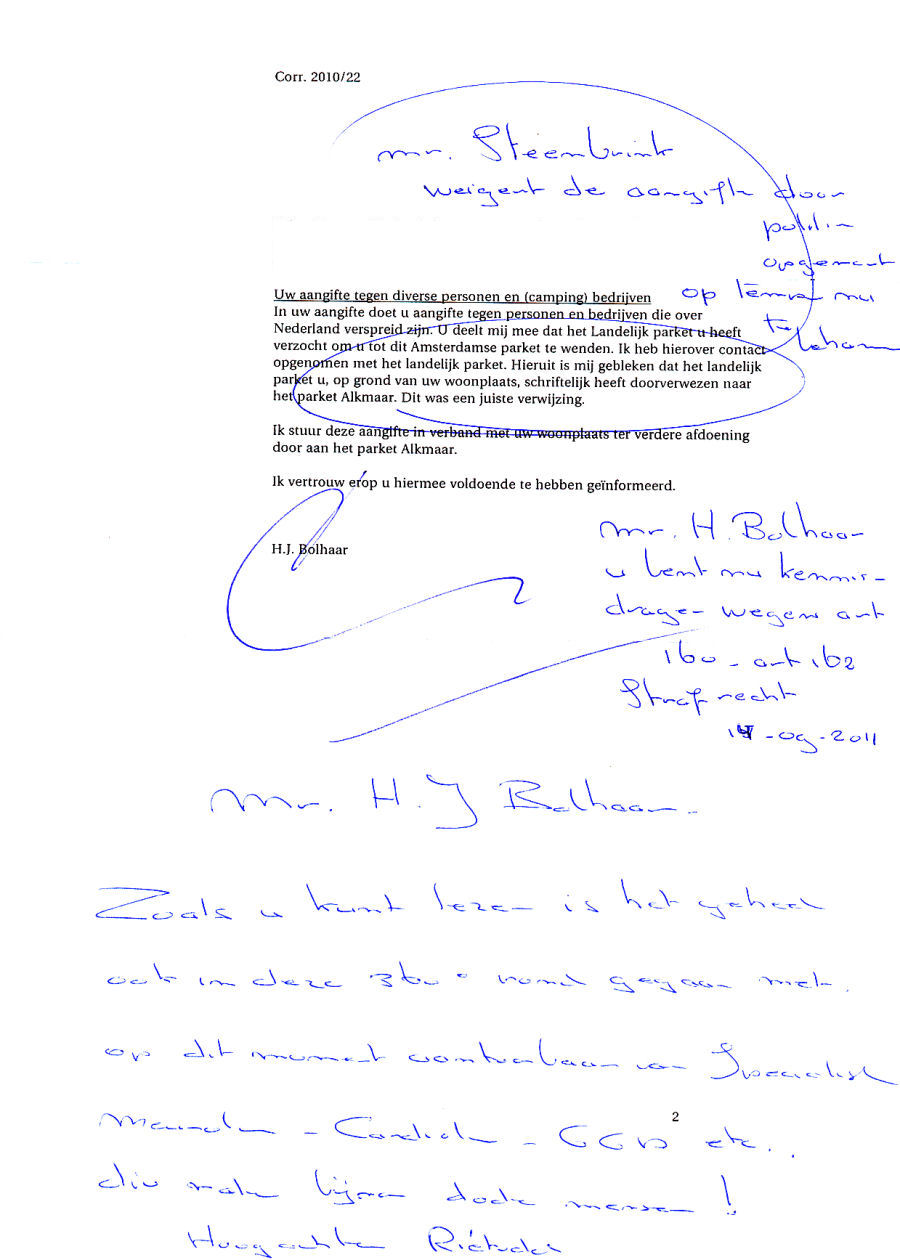 Corr. 2010/22
mr. Steenbrink
weigert de aangifte door
opgemaakt
op
nu
te
Uw aangifte tegen diverse personen en (camping) bedrijven
In uw aangifte doet u aangifte tegen personen en bedrijven die over
Nederland verspreid zijn. U deelt mij mee dat het Landelijk parket u heeft
verzocht om u tot dit Amsterdamse parket te wenden. Ik heb hierover contact
opgenomen met het landelijk parket. Hieruit is mij gebleken dat het landelijk
parket u, op grond van uw woonplaats, schriftelijk heeft doorverwezen naar
het parket Alkmaar. Dit was een juiste verwijzing.
Ik stuur deze aangifte in verband met uw woonplaats ter verdere afdoening
door aan het parket Alkmaar.
Ik vertrouw erop u hiermee voldoende te hebben geïnformeerd.
H.J. Bolhaar
mr. H. Bolhaar
u bent nu kennis-
drager wegens art
160 - art 162
Strafrecht
14-09-2011
Mr. H. J Bolhaar.
Zoals u kunt lezen is het geheel
ook in deze 360° rond gegaan met.
op dit moment van Specialist
- - GGD etc..
div bijna dode mensen!
2